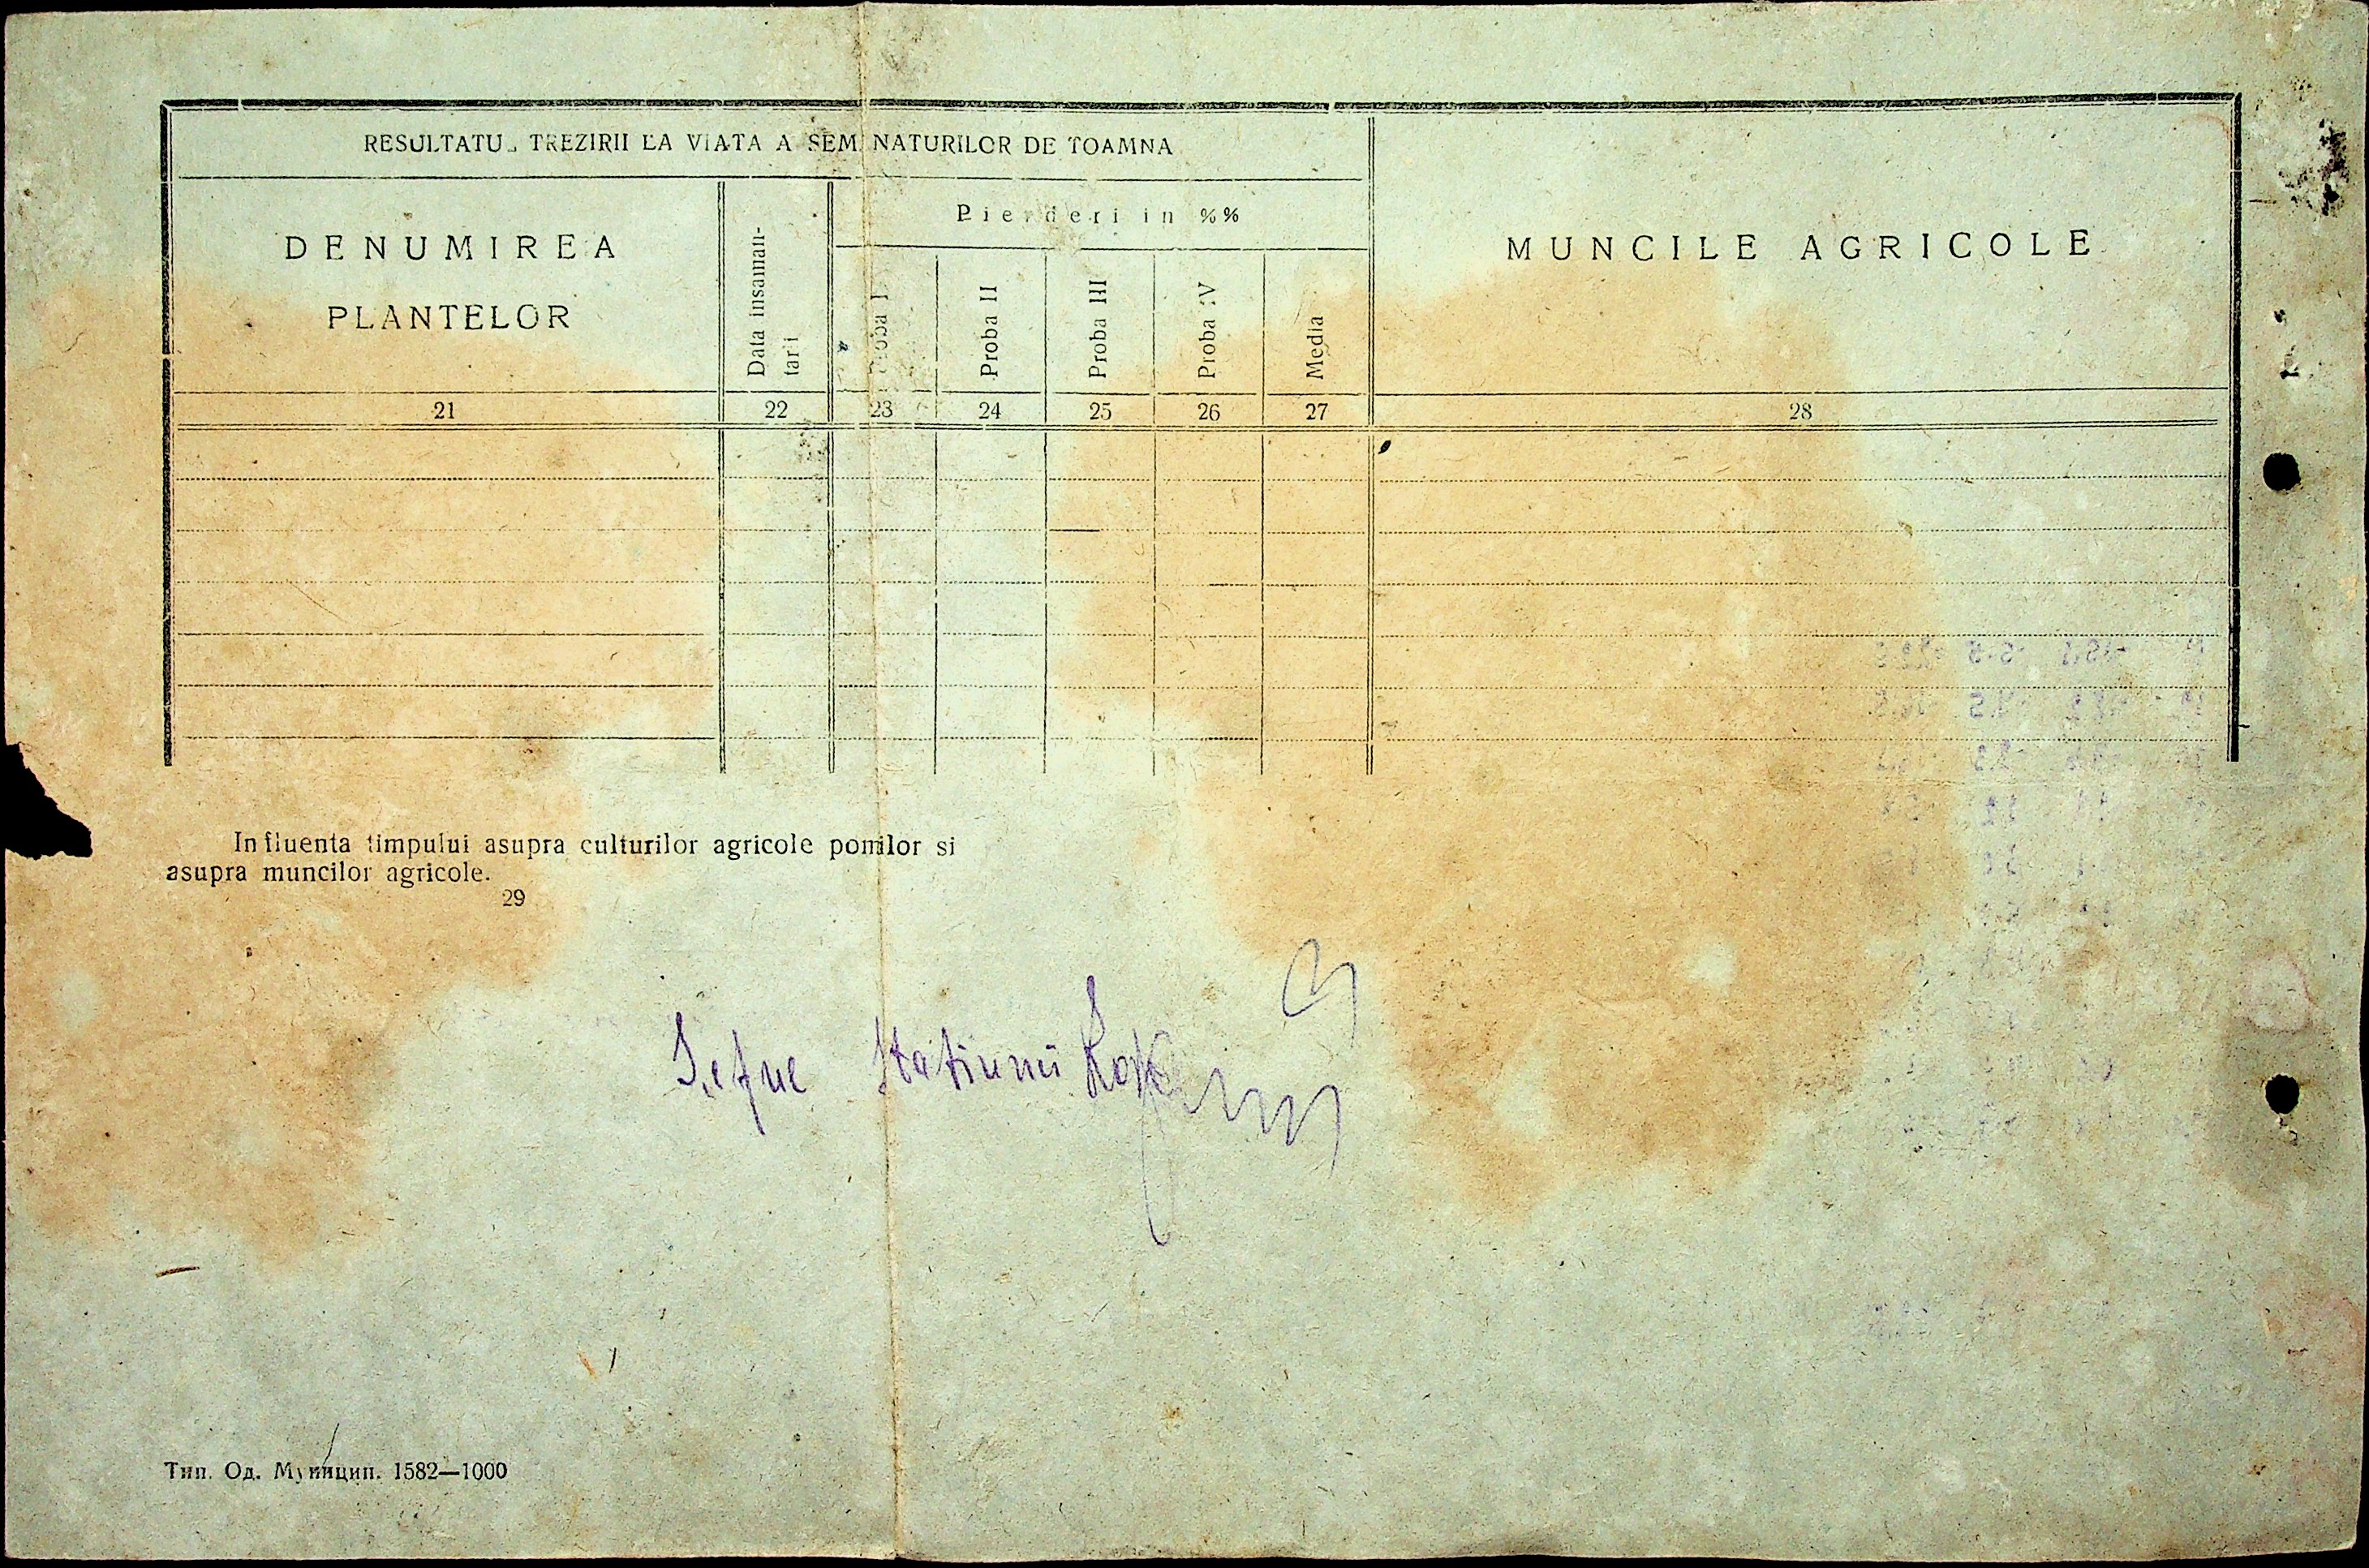 RESULTATUL TREZIRII LA VIATA A SEMINATURILOR DE TOAMNA
DENUMIREA
PLANTELOR
Data insaman-
tarii
Pierderi in %%
Proba I
Proba II
Proba III
Proba IV
Media
MUNCILE AGRICOLE
21 22 23 24 25 26 27 28
Influenta timpului asupra culturilor agricole pomilor si
asupra muncilor agricole.
29
Sefue Statiunii
Тип. Од. Муницип. 1582—1000